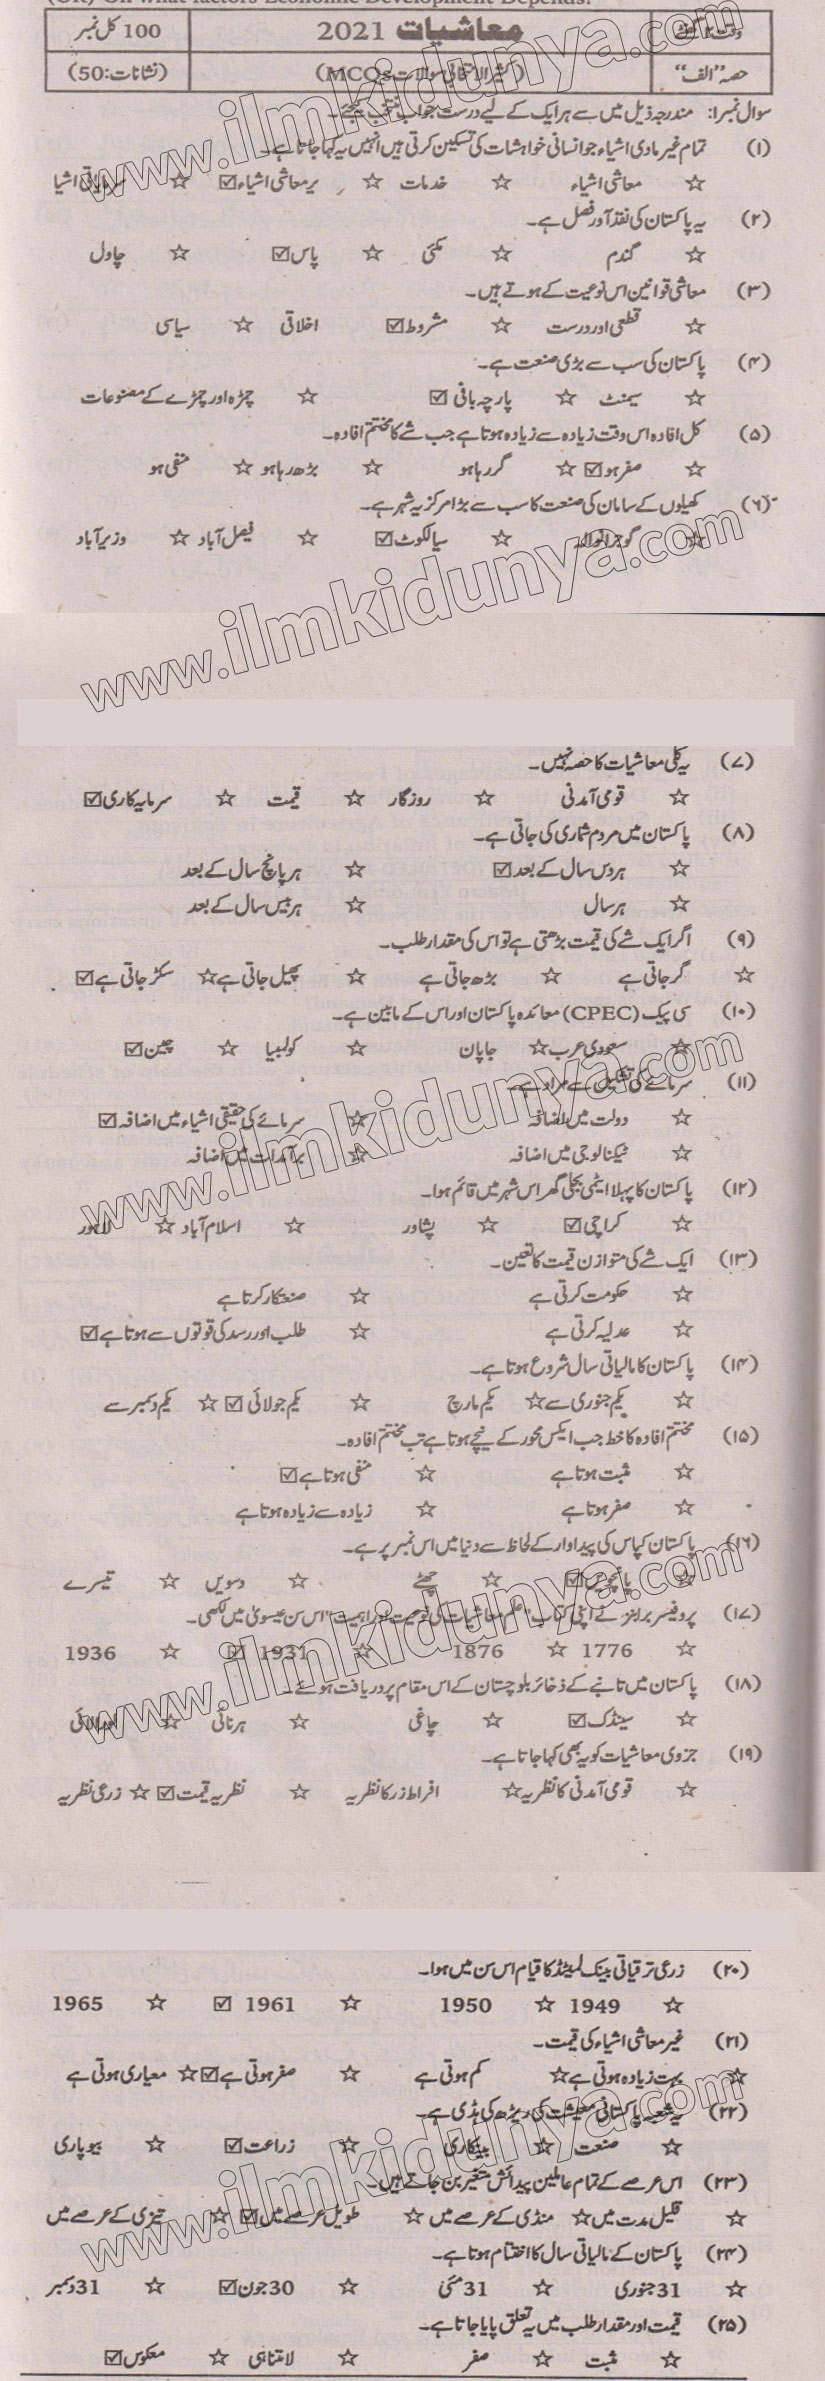 (OR) On what factors Economic Development Depends?
100 کل نمبر معاشیات 2021 وقت
حصہ "الف" (کثیر الانتخابی سوالات MCQs) (نشانات: 50)
سوال نمبر ۱: مندرجہ ذیل میں سے ہر ایک کے لیے درست جواب منتخب کیجئے۔
(۱) تمام غیر مادی اشیاء جو انسانی خواہشات کی تسکین کرتی ہیں انہیں یہ کہا جاتا ہے۔
☆ معاشی اشیاء ☆ خدمات ☆ بر معاشی اشیاء ☑ ☆ سرمایاتی اشیا
(۲) یہ پاکستان کی نقد آور فصل ہے۔
☆ گندم ☆ مکئی ☆ پاس ☑ ☆ چاول
(۳) معاشی قوانین اس نوعیت کے ہوتے ہیں۔
☆ قطعی اور درست ☆ مشروط ☑ اخلاقی ☆ سیاسی
(۴) پاکستان کی سب سے بڑی صنعت ہے۔
☆ سیمنٹ ☆ پارچہ بافی ☑ ☆ چمڑہ اور چمڑے کے مصنوعات
(۵) کل افادہ اس وقت زیادہ سے زیادہ ہوتا ہے جب شے کا مختتم افادہ۔
☆ صفر ہو ☑ ☆ گر رہا ہو ☆ بڑھ رہا ہو ☆ منفی ہو
(۶) کھیلوں کے سامان کی صنعت کا سب سے بڑا مرکز یہ شہر ہے۔
☆ گوجرانوالہ ☆ سیالکوٹ ☑ ☆ فیصل آباد ☆ وزیر آباد
www.ilmkidunya.com
(۷) یہ کلی معاشیات کا حصہ نہیں۔
☆ قومی آمدنی ☆ روزگار ☆ قیمت ☆ سرمایہ کاری ☑
(۸) پاکستان میں مردم شماری کی جاتی ہے۔
☆ ہر دس سال کے بعد ☑ ☆ ہر پانچ سال کے بعد
☆ ہر سال ☆ ہر بیس سال کے بعد
(۹) اگر ایک شے کی قیمت بڑھتی ہے تو اس کی مقدار طلب۔
☆ گر جاتی ہے ☆ بڑھ جاتی ہے ☆ پھیل جاتی ہے ☆ سکڑ جاتی ہے ☑
(۱۰) سی پیک (CPEC) معائدہ پاکستان اور اس کے مابین ہے۔
☆ سعودی عرب ☆ جاپان ☆ کولمبیا ☆ چین ☑
(۱۱) سرمائے کی تشکیل سے مراد ہے۔
☆ دولت میں اضافہ ☆ سرمائے کی حقیقی اشیاء میں اضافہ ☑
☆ ٹیکنالوجی میں اضافہ ☆ برآمدات میں اضافہ
(۱۲) پاکستان کا پہلا ایٹمی بجلی گھر اس شہر میں قائم ہوا۔
☆ کراچی ☑ ☆ پشاور ☆ اسلام آباد ☆ لاہور
(۱۳) ایک شے کی متوازن قیمت کا تعین۔
☆ حکومت کرتی ہے ☆ صنعتکار کرتا ہے
☆ عدلیہ کرتی ہے ☆ طلب اور رسد کی قوتوں سے ہوتا ہے ☑
(۱۴) پاکستان کا مالیاتی سال شروع ہوتا ہے۔
☆ یکم جنوری سے ☆ یکم مارچ ☆ یکم جولائی ☑ ☆ یکم دسمبر سے
(۱۵) مختتم افادہ کا خط جب ایکس محور کے نیچے ہوتا ہے تب مختتم افادہ۔
☆ مثبت ہوتا ہے ☆ منفی ہوتا ہے ☑
☆ صفر ہوتا ہے ☆ زیادہ سے زیادہ ہوتا ہے
(۱۶) پاکستان کپاس کی پیداوار کے لحاظ سے دنیا میں اس نمبر پر ہے۔
☆ پانچویں ☑ ☆ چھٹے ☆ دسویں ☆ تیسرے
(۱۷) پروفیسر رابنز نے اپنی کتاب "علم معاشیات کی نوعیت اور اہمیت" اس سن عیسوی میں لکھی۔
☆ 1776 ☆ 1876 ☆ 1931 ☑ ☆ 1936
(۱۸) پاکستان میں تانبے کے ذخائر بلوچستان کے اس مقام پر دریافت ہوئے۔
☆ سینڈک ☑ ☆ چاغی ☆ ہرنائی ☆ لورالائی
(۱۹) جزوی معاشیات کو یہ بھی کہا جاتا ہے۔
☆ قومی آمدنی کا نظریہ ☆ افراط زر کا نظریہ ☆ نظریہ قیمت ☑ ☆ زرعی نظریہ
(۲۰) زرعی ترقیاتی بینک لمیٹڈ کا قیام اس سن میں ہوا۔
☆ 1949 ☆ 1950 ☆ 1961 ☑ ☆ 1965
(۲۱) غیر معاشی اشیاء کی قیمت۔
☆ بہت زیادہ ہوتی ہے ☆ کم ہوتی ہے ☆ صفر ہوتی ہے ☑ ☆ معیاری ہوتی ہے
(۲۲) یہ شعبہ پاکستانی معیشت کی ریڑھ کی ہڈی ہے۔
☆ صنعت ☆ بینکاری ☆ زراعت ☑ ☆ بیوپاری
(۲۳) اس عرصے کے تمام عاملین پیدائش متغیر بن جاتے ہیں۔
☆ قلیل مدت میں ☆ منڈی کے عرصے میں ☆ طویل عرصے میں ☑ ☆ تیزی کے عرصے میں
(۲۴) پاکستان کے مالیاتی سال کا اختتام ہوتا ہے۔
☆ 31 جنوری ☆ 31 مئی ☆ 30 جون ☑ ☆ 31 دسمبر
(۲۵) قیمت اور مقدار طلب میں یہ تعلق پایا جاتا ہے۔
☆ مثبت ☆ صفر ☆ لامتناہی ☆ معکوس ☑